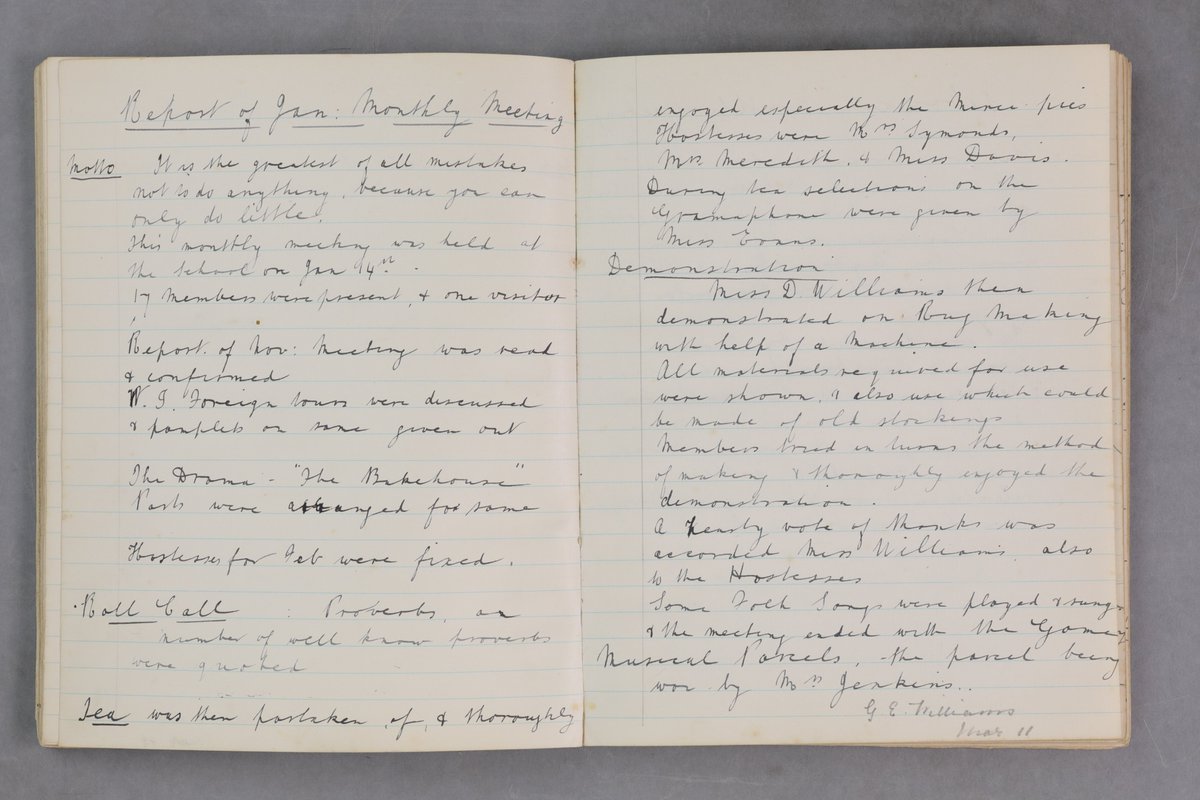 Report of Jan: Monthly Meeting
Motto It is the greatest of all mistakes
not to do anything, because you can
only do little.
This monthly meeting was held at
the School on Jan 14st.
17 members were present, & one visitor
Report of Nov: Meeting was read
& confirmed
W. I. Foreign tours were discussed
& pamplets on same given out
The Drama - "The Bakehouse"
Parts were arranged for same
Hostesses for Feb were fixed.
Roll Call : Proverbs, an
number of well know proverbs
were quoted
Tea was then partaken of, & thoroughly
enjoyed especially the mince pies
Hostesses were Mrs Symonds,
Mrs Meredith, & Miss Davis.
During tea selections on the
Gramaphone were given by
Miss Evans.
Demonstration
Miss D. Williams then
demonstrated on Rug Making
with help of a Machine.
All materials required for use
were shown, & also use which could
be made of old stockings
Members tried in turns the method
of making & thoroughly enjoyed the
demonstration.
A hearty vote of thanks was
accorded Miss Williams, also
to the Hostesses
Some Folk Songs were played & sung
& the meeting ended with the Game
Musical Parcels, the parcel being
won by Mrs Jenkins..
G. E. Williams
Mar 11